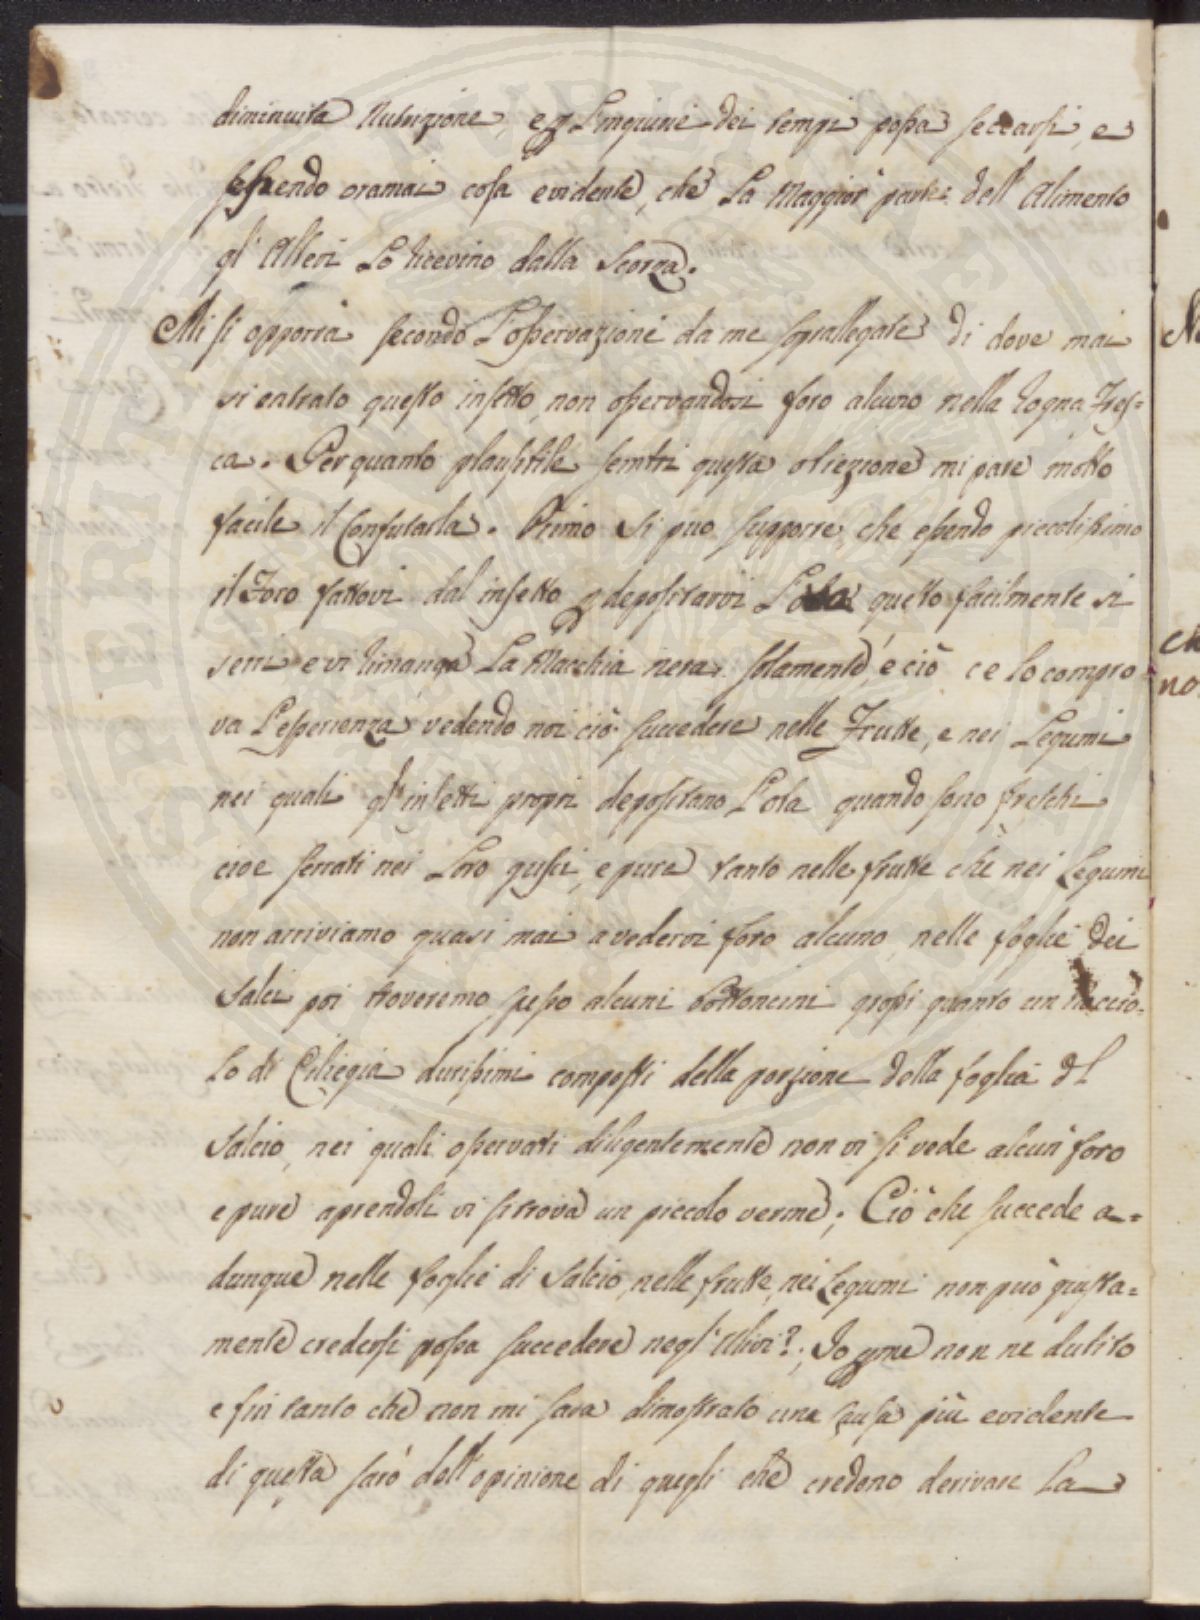 diminuita Nutrizione, e p L'ingiurie dei tempi possa seccarsi, e
essendo oramai cosa evidente, che La Maggior parte dell'Alimento
gl'Alberi Lo ricevino dalla Scorza.
Mi si opporrà secondo L'osservazioni da me soprallegate di dove mai
si entrato questo insetto, non osservandosi foro alcuno nella rogna Fres=
ca. Per quanto plausibile sembri questa obiezione mi pare molto
facile il Confutarla. Primo si può supporre, che essendo piccolissimo
il Foro fattovi dal insetto p depositarvi L'ova quello facilmente si
serri e vi rimanga La Macchia nera solamente, e ciò ce lo compro
va L'esperienza vedendo noi ciò succedere nelle Frutte, e nei Legumi
nei quali gl'insetti propri depositano L'ova quando sono freschi
cioe serrati nei Loro gusci, e pure tanto nelle frutte che nei Legumi
non arriviamo quasi mai a vedervi foro alcuno, nelle foglie dei
Salci poi troveremo spesso alcuni bottoncini grossi quanto un nuccio=
lo di Ciliegia durissimi composti della porzione della foglia dl
Salcio, nei quali osservati diligentemente non vi si vede alcun foro
e pure aprendoli vi si trova un piccolo verme; Ciò che succede a=
dunque nelle foglie di Salcio, nelle frutte, nei Legumi non può giusta=
mente credersi possa succedere negl'Ulivi?; Io p me non ne dubito
e fin tanto che non mi sara dimostrato una causa più evidente
di questa sarò dell'opinione di quegli che credono derivare La